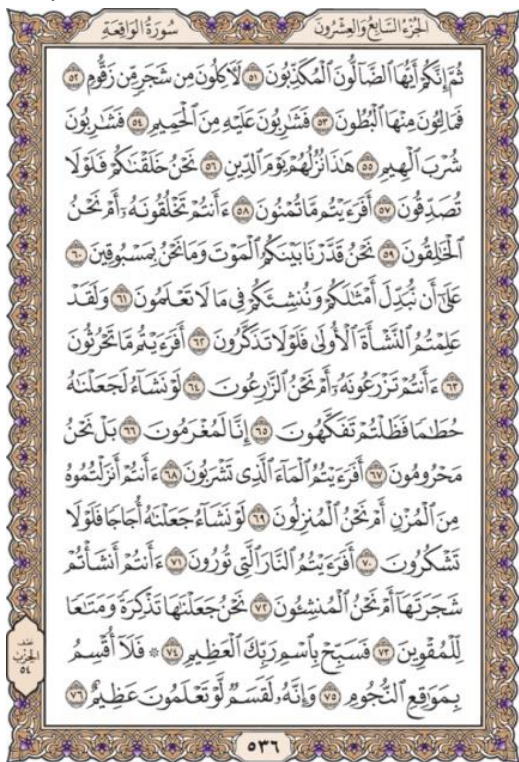 الجُزْءُ السَّابِعُ وَالعِشْرُونَ سُورَةُ الوَاقِعَةِ
ثُمَّ إِنَّكُمْ أَيُّهَا ٱلضَّآلُّونَ ٱلْمُكَذِّبُونَ ٥١ لَأٓكِلُونَ مِن شَجَرٍ مِّن زَقُّومٍ ٥٢
فَمَالِـُٔونَ مِنْهَا ٱلْبُطُونَ ٥٣ فَشَٰرِبُونَ عَلَيْهِ مِنَ ٱلْحَمِيمِ ٥٤ فَشَٰرِبُونَ
شُرْبَ ٱلْهِيمِ ٥٥ هَٰذَا نُزُلُهُمْ يَوْمَ ٱلدِّينِ ٥٦ نَحْنُ خَلَقْنَٰكُمْ فَلَوْلَا
تُصَدِّقُونَ ٥٧ أَفَرَءَيْتُم مَّا تُمْنُونَ ٥٨ ءَأَنتُمْ تَخْلُقُونَهُۥٓ أَمْ نَحْنُ
ٱلْخَٰلِقُونَ ٥٩ نَحْنُ قَدَّرْنَا بَيْنَكُمُ ٱلْمَوْتَ وَمَا نَحْنُ بِمَسْبُوقِينَ ٦٠
عَلَىٰٓ أَن نُّبَدِّلَ أَمْثَٰلَكُمْ وَنُنشِئَكُمْ فِى مَا لَا تَعْلَمُونَ ٦١ وَلَقَدْ
عَلِمْتُمُ ٱلنَّشْأَةَ ٱلْأُولَىٰ فَلَوْلَا تَذَكَّرُونَ ٦٢ أَفَرَءَيْتُم مَّا تَحْرُثُونَ
٦٣ ءَأَنتُمْ تَزْرَعُونَهُۥٓ أَمْ نَحْنُ ٱلزَّٰرِعُونَ ٦٤ لَوْ نَشَآءُ لَجَعَلْنَٰهُ
حُطَٰمًا فَظَلْتُمْ تَفَكَّهُونَ ٦٥ إِنَّا لَمُغْرَمُونَ ٦٦ بَلْ نَحْنُ
مَحْرُومُونَ ٦٧ أَفَرَءَيْتُمُ ٱلْمَآءَ ٱلَّذِى تَشْرَبُونَ ٦٨ ءَأَنتُمْ أَنزَلْتُمُوهُ
مِنَ ٱلْمُزْنِ أَمْ نَحْنُ ٱلْمُنزِلُونَ ٦٩ لَوْ نَشَآءُ جَعَلْنَٰهُ أُجَاجًا فَلَوْلَا
تَشْكُرُونَ ٧٠ أَفَرَءَيْتُمُ ٱلنَّارَ ٱلَّتِى تُورُونَ ٧١ ءَأَنتُمْ أَنشَأْتُمْ
شَجَرَتَهَآ أَمْ نَحْنُ ٱلْمُنشِـُٔونَ ٧٢ نَحْنُ جَعَلْنَٰهَا تَذْكِرَةً وَمَتَٰعًا
لِّلْمُقْوِينَ ٧٣ فَسَبِّحْ بِٱسْمِ رَبِّكَ ٱلْعَظِيمِ ٧٤ ۞ فَلَآ أُقْسِمُ
بِمَوَٰقِعِ ٱلنُّجُومِ ٧٥ وَإِنَّهُۥ لَقَسَمٌ لَّوْ تَعْلَمُونَ عَظِيمٌ ٧٦
نصف
الحزب
٥٤
٥٣٦